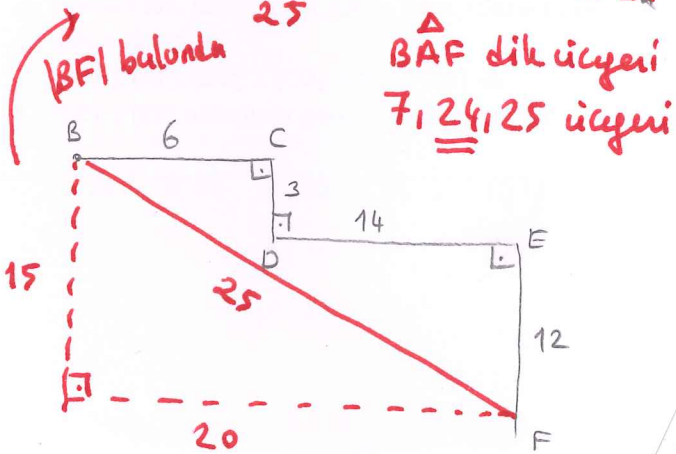 25
|BF| bulundu
BAF dik üçgeni
7, 24, 25 üçgeni
B 6 C
3
14 E
D
15
25
12
20
F